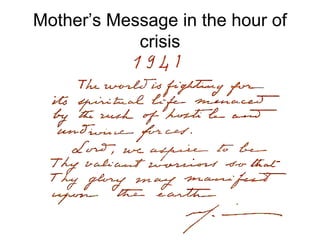 Mother’s Message in the hour of
crisis
1941
The world is fighting for
its spiritual life menaced
by the rush of hostile and
undivine forces.
Lord, we aspire to be
Thy valiant warriors so that
Thy glory may manifest
upon the earth